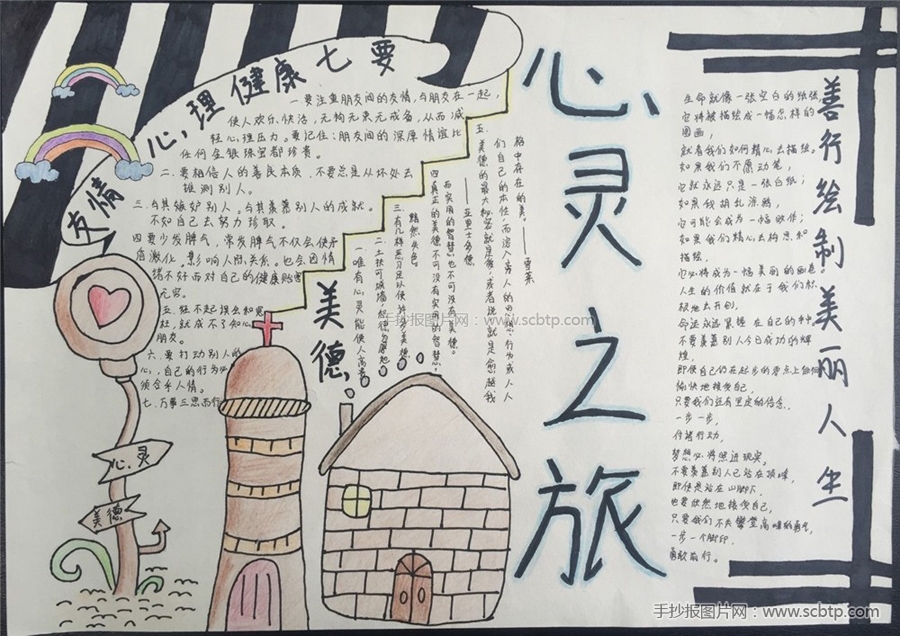 心灵之旅
心理健康七要
友情
一要注重朋友间的友情,与朋友在一起,
使人欢乐、快活,无拘无束无戒备,从而减
轻心理压力。要记住:朋友间的深厚情谊比
任何金银珠宝都珍贵。
二.要相信人的善良本质,不要总是从坏处去
推测别人。
三.与其嫉妒别人。与其羡慕别人的成就。
不如自己去努力珍取。
四要少发脾气,常发脾气不仅会使矛
盾激化,影响人际关系。也会因情
绪不好而对自己的健康贻害
无穷。
五.
就成不了知心
朋友。
六.要打动别人的
心,自己的行为必
须合乎人情。
七.万事三思而行
美德
一.唯有心灵能使人高贵。
黯然失色。
四真正的美德不可没有实用的智慧,
而实用的智慧也不可没有美德。
——亚里士多德
五.美德的最大秘密就是爱,或者说,就是逾越我
们自己的本性,而溶入旁人的
行为或人
格中存在的美。——雪莱
心灵
美德
善行绘制美丽人生
生命就像一张空白的纸张
它将被描绘成一幅怎样的
图画,
就看我们如何精心去描绘。
如果我们不愿动笔,
它就永远只是一张白纸;
如果我胡乱涂鸦,
它可能会成为一幅败作;
如果我们精心去构思和
描绘,
它必将成为一幅美丽的画卷。
人生的价值就在于我们积
极地去开创,
命运永远紧握在自己的手中,
不要羡慕别人今日成功的辉
煌,
愉快地接受自己,
只要我们还有坚定的信念,
一步一步,
付诸行动,
梦想必将照进现实。
不要羡慕别人已站在顶峰,
即使是站在山脚下,
也要欣然地接受自己,
只要我们不失攀登高峰的勇气,
一步一个脚印,
勇敢前行。
手抄报图片网:www.scbtp.com
手抄报图片网:www.scbtp.com